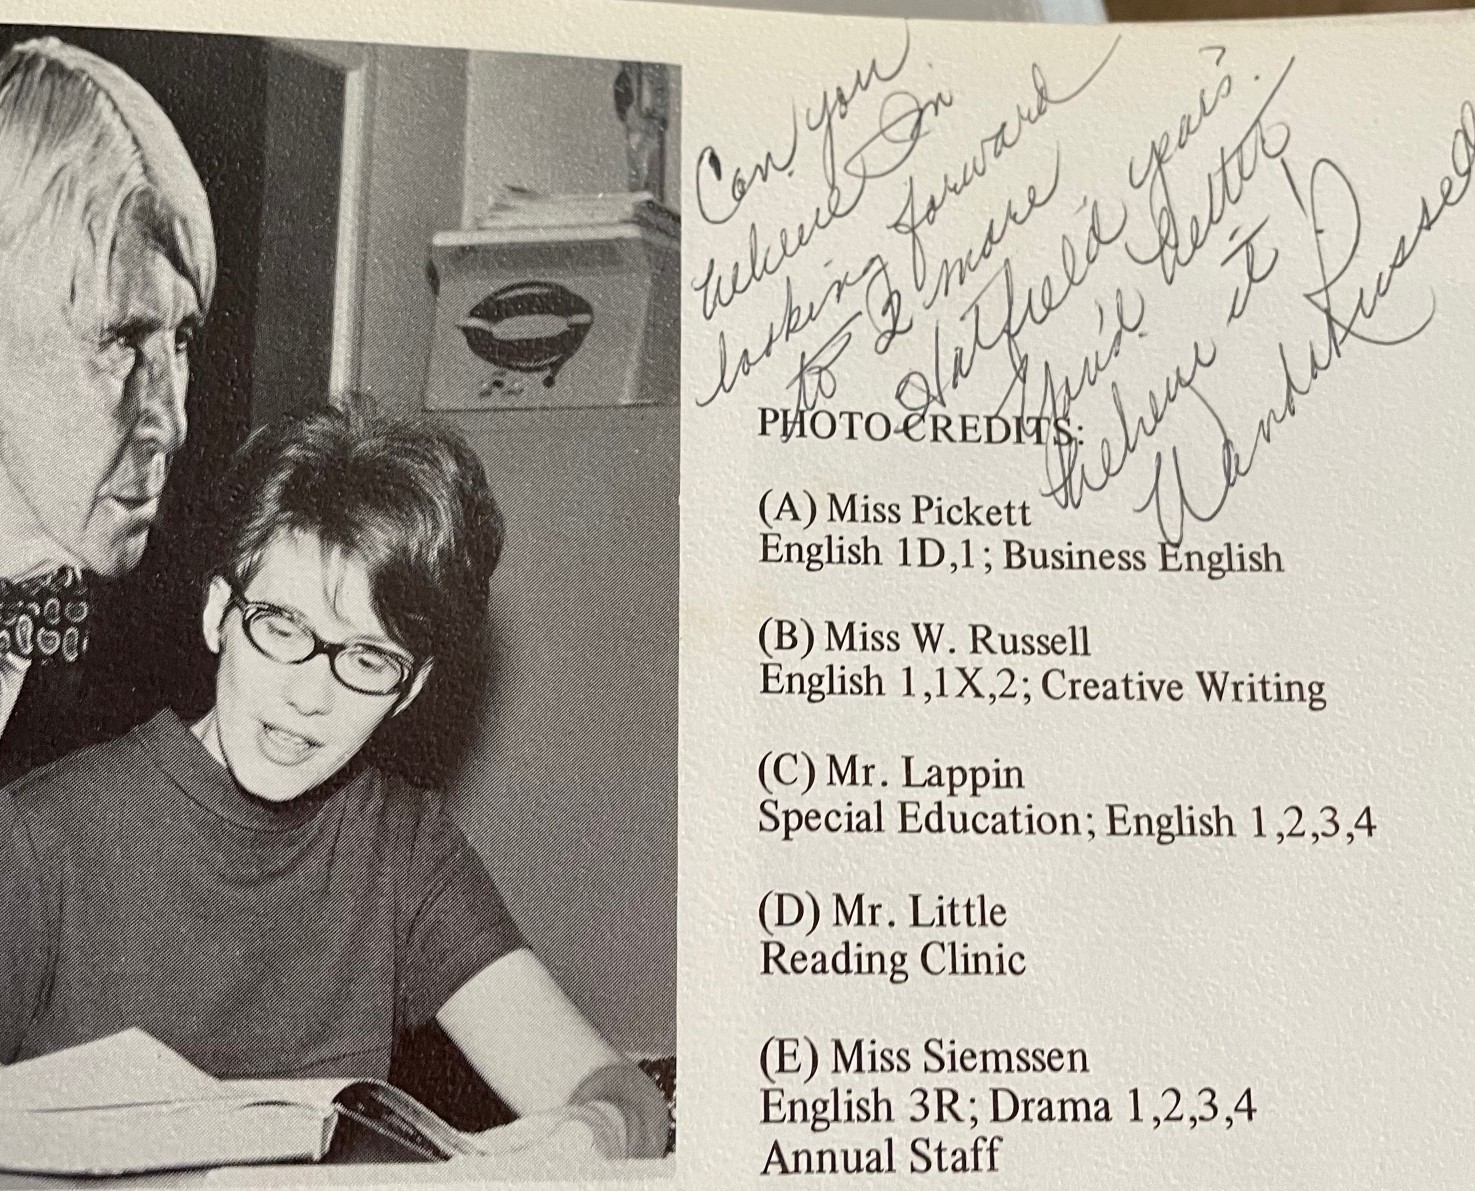 Can you
believe I'm
looking forward
to 2 more
Hatfield years?
You'd better
believe it!
Wanda Russell
PHOTO CREDITS:
(A) Miss Pickett
English 1D,1; Business English
(B) Miss W. Russell
English 1,1X,2; Creative Writing
(C) Mr. Lappin
Special Education; English 1,2,3,4
(D) Mr. Little
Reading Clinic
(E) Miss Siemssen
English 3R; Drama 1,2,3,4
Annual Staff